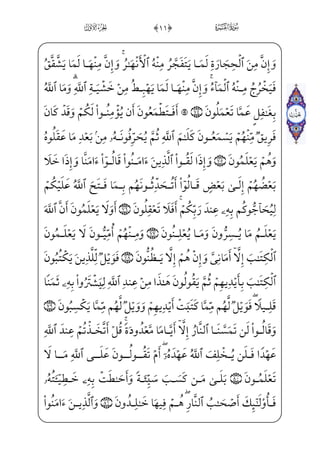 سُورَةُ البَقَرَةِ ﴿١١﴾ الجُزءُ الأَوَّلُ
وَإِنَّ مِنَ ٱلْحِجَارَةِ لَمَا يَتَفَجَّرُ مِنْهُ ٱلْأَنْهَـٰرُ ۚ وَإِنَّ مِنْهَا لَمَا يَشَّقَّقُ
فَيَخْرُجُ مِنْهُ ٱلْمَآءُ ۚ وَإِنَّ مِنْهَا لَمَا يَهْبِطُ مِنْ خَشْيَةِ ٱللَّهِ ۗ وَمَا ٱللَّهُ
بِغَـٰفِلٍ عَمَّا تَعْمَلُونَ ۝٧٤ ۞ أَفَتَطْمَعُونَ أَن يُؤْمِنُوا۟ لَكُمْ وَقَدْ كَانَ
فَرِيقٌ مِّنْهُمْ يَسْمَعُونَ كَلَـٰمَ ٱللَّهِ ثُمَّ يُحَرِّفُونَهُۥ مِنۢ بَعْدِ مَا عَقَلُوهُ
وَهُمْ يَعْلَمُونَ ۝٧٥ وَإِذَا لَقُوا۟ ٱلَّذِينَ ءَامَنُوا۟ قَالُوٓا۟ ءَامَنَّا وَإِذَا خَلَا
بَعْضُهُمْ إِلَىٰ بَعْضٍ قَالُوٓا۟ أَتُحَدِّثُونَهُم بِمَا فَتَحَ ٱللَّهُ عَلَيْكُمْ
لِيُحَآجُّوكُم بِهِۦ عِندَ رَبِّكُمْ ۚ أَفَلَا تَعْقِلُونَ ۝٧٦ أَوَلَا يَعْلَمُونَ أَنَّ ٱللَّهَ
يَعْلَمُ مَا يُسِرُّونَ وَمَا يُعْلِنُونَ ۝٧٧ وَمِنْهُمْ أُمِّيُّونَ لَا يَعْلَمُونَ
ٱلْكِتَـٰبَ إِلَّآ أَمَانِىَّ وَإِنْ هُمْ إِلَّا يَظُنُّونَ ۝٧٨ فَوَيْلٌ لِّلَّذِينَ يَكْتُبُونَ
ٱلْكِتَـٰبَ بِأَيْدِيهِمْ ثُمَّ يَقُولُونَ هَـٰذَا مِنْ عِندِ ٱللَّهِ لِيَشْتَرُوا۟ بِهِۦ ثَمَنًا
قَلِيلًا ۖ فَوَيْلٌ لَّهُم مِّمَّا كَتَبَتْ أَيْدِيهِمْ وَوَيْلٌ لَّهُم مِّمَّا يَكْسِبُونَ ۝٧٩
وَقَالُوا۟ لَن تَمَسَّنَا ٱلنَّارُ إِلَّآ أَيَّامًا مَّعْدُودَةً ۚ قُلْ أَتَّخَذْتُمْ عِندَ ٱللَّهِ
عَهْدًا فَلَن يُخْلِفَ ٱللَّهُ عَهْدَهُۥٓ ۖ أَمْ تَقُولُونَ عَلَى ٱللَّهِ مَا لَا
تَعْلَمُونَ ۝٨٠ بَلَىٰ مَن كَسَبَ سَيِّئَةً وَأَحَـٰطَتْ بِهِۦ خَطِيٓـَٔتُهُۥ
فَأُو۟لَـٰٓئِكَ أَصْحَـٰبُ ٱلنَّارِ ۖ هُمْ فِيهَا خَـٰلِدُونَ ۝٨١ وَٱلَّذِينَ ءَامَنُوا۟